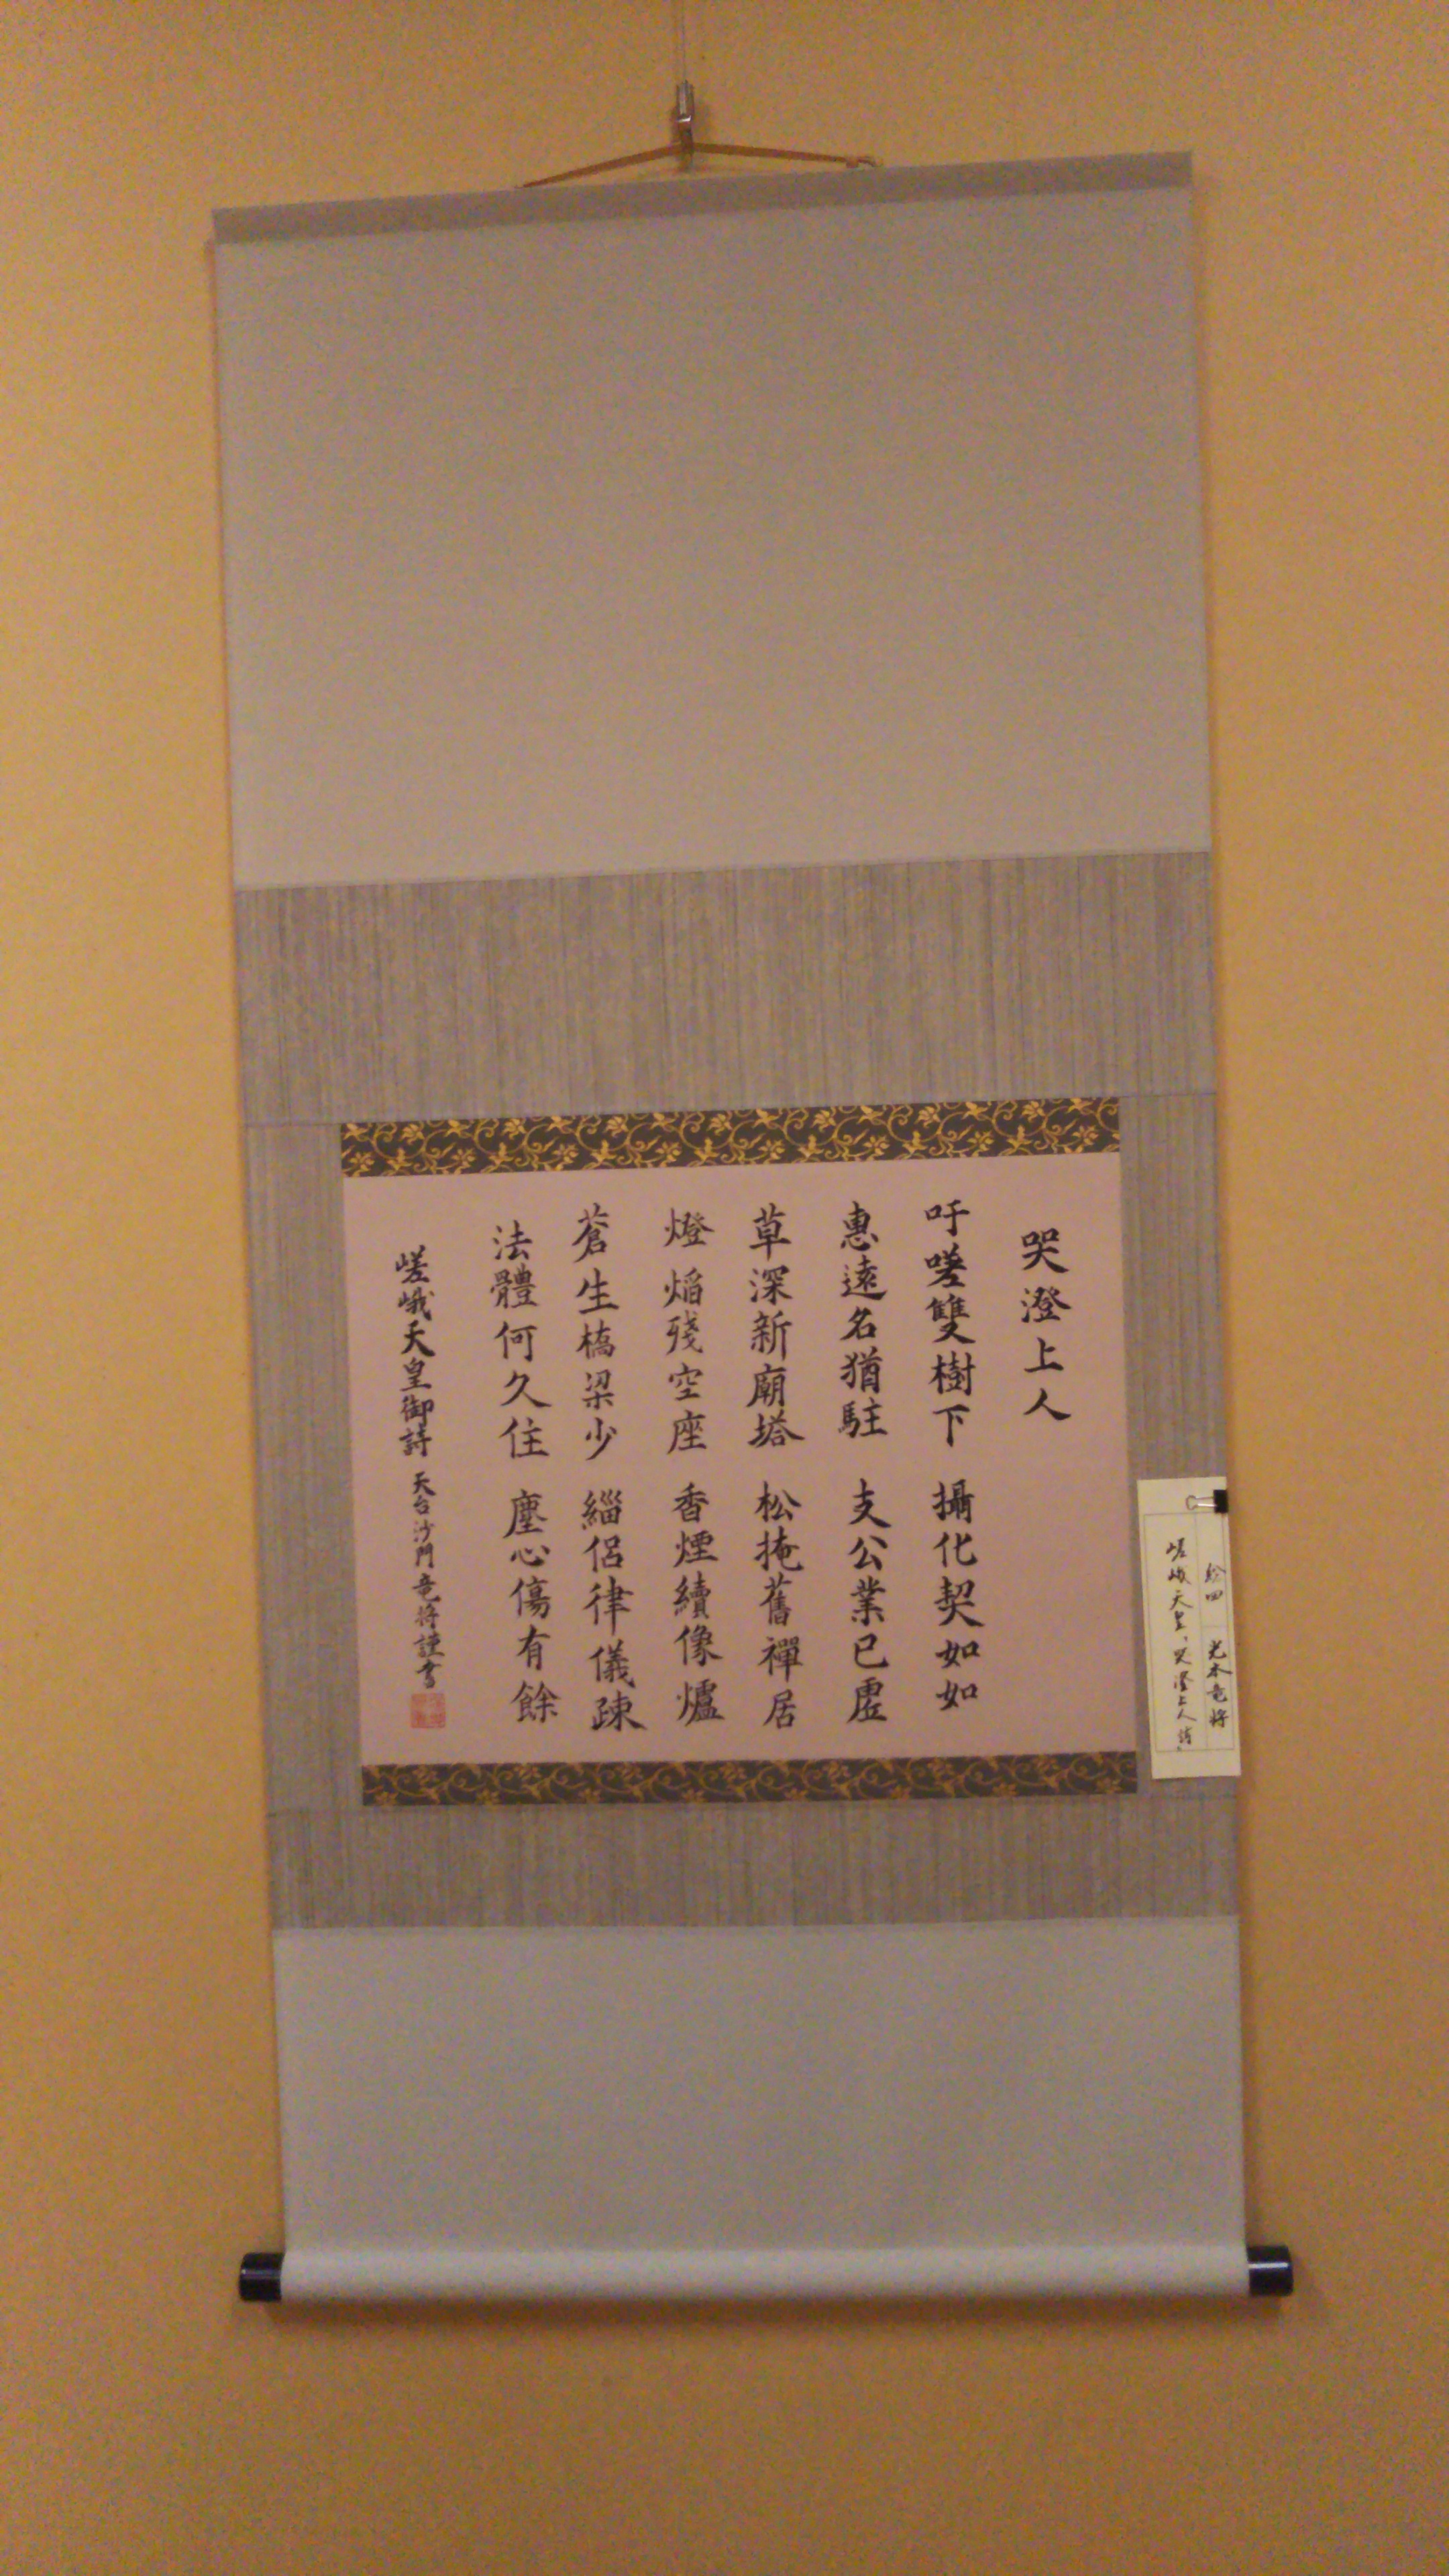 哭澄上人
吁嗟雙樹下 攝化契如如
惠遠名猶駐 支公業已虛
草深新廟塔 松掩舊禪居
燈焔殘空座 香煙續像爐
蒼生橋梁少 緇侶律儀疎
法體何久住 塵心傷有餘
嵯峨天皇御詩 天台沙門竜将謹書
光本竜将
嵯峨天皇、哭澄上人詩